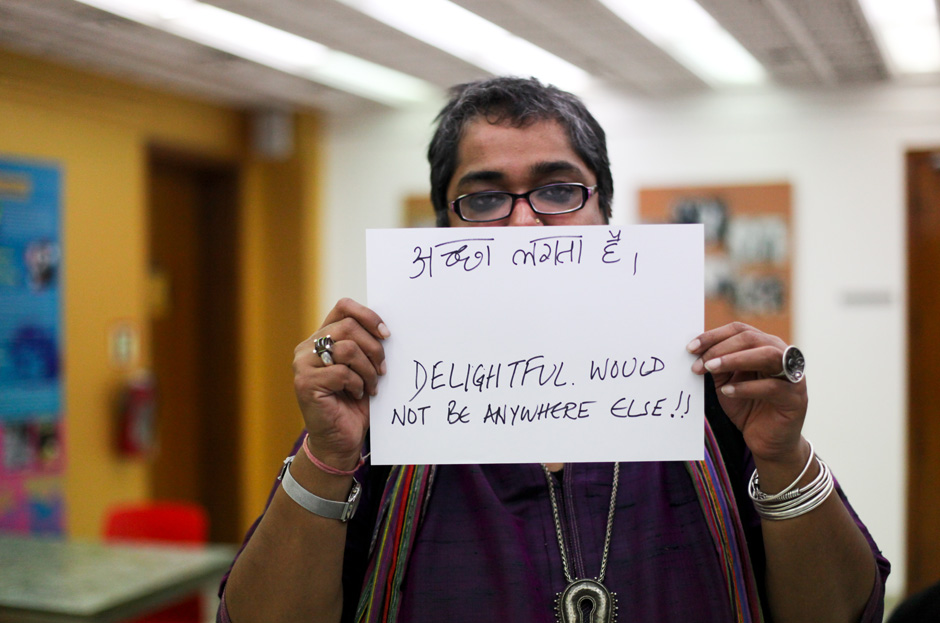 अच्छा लगता है।
DELIGHTFUL. WOULD
NOT BE ANYWHERE ELSE!!